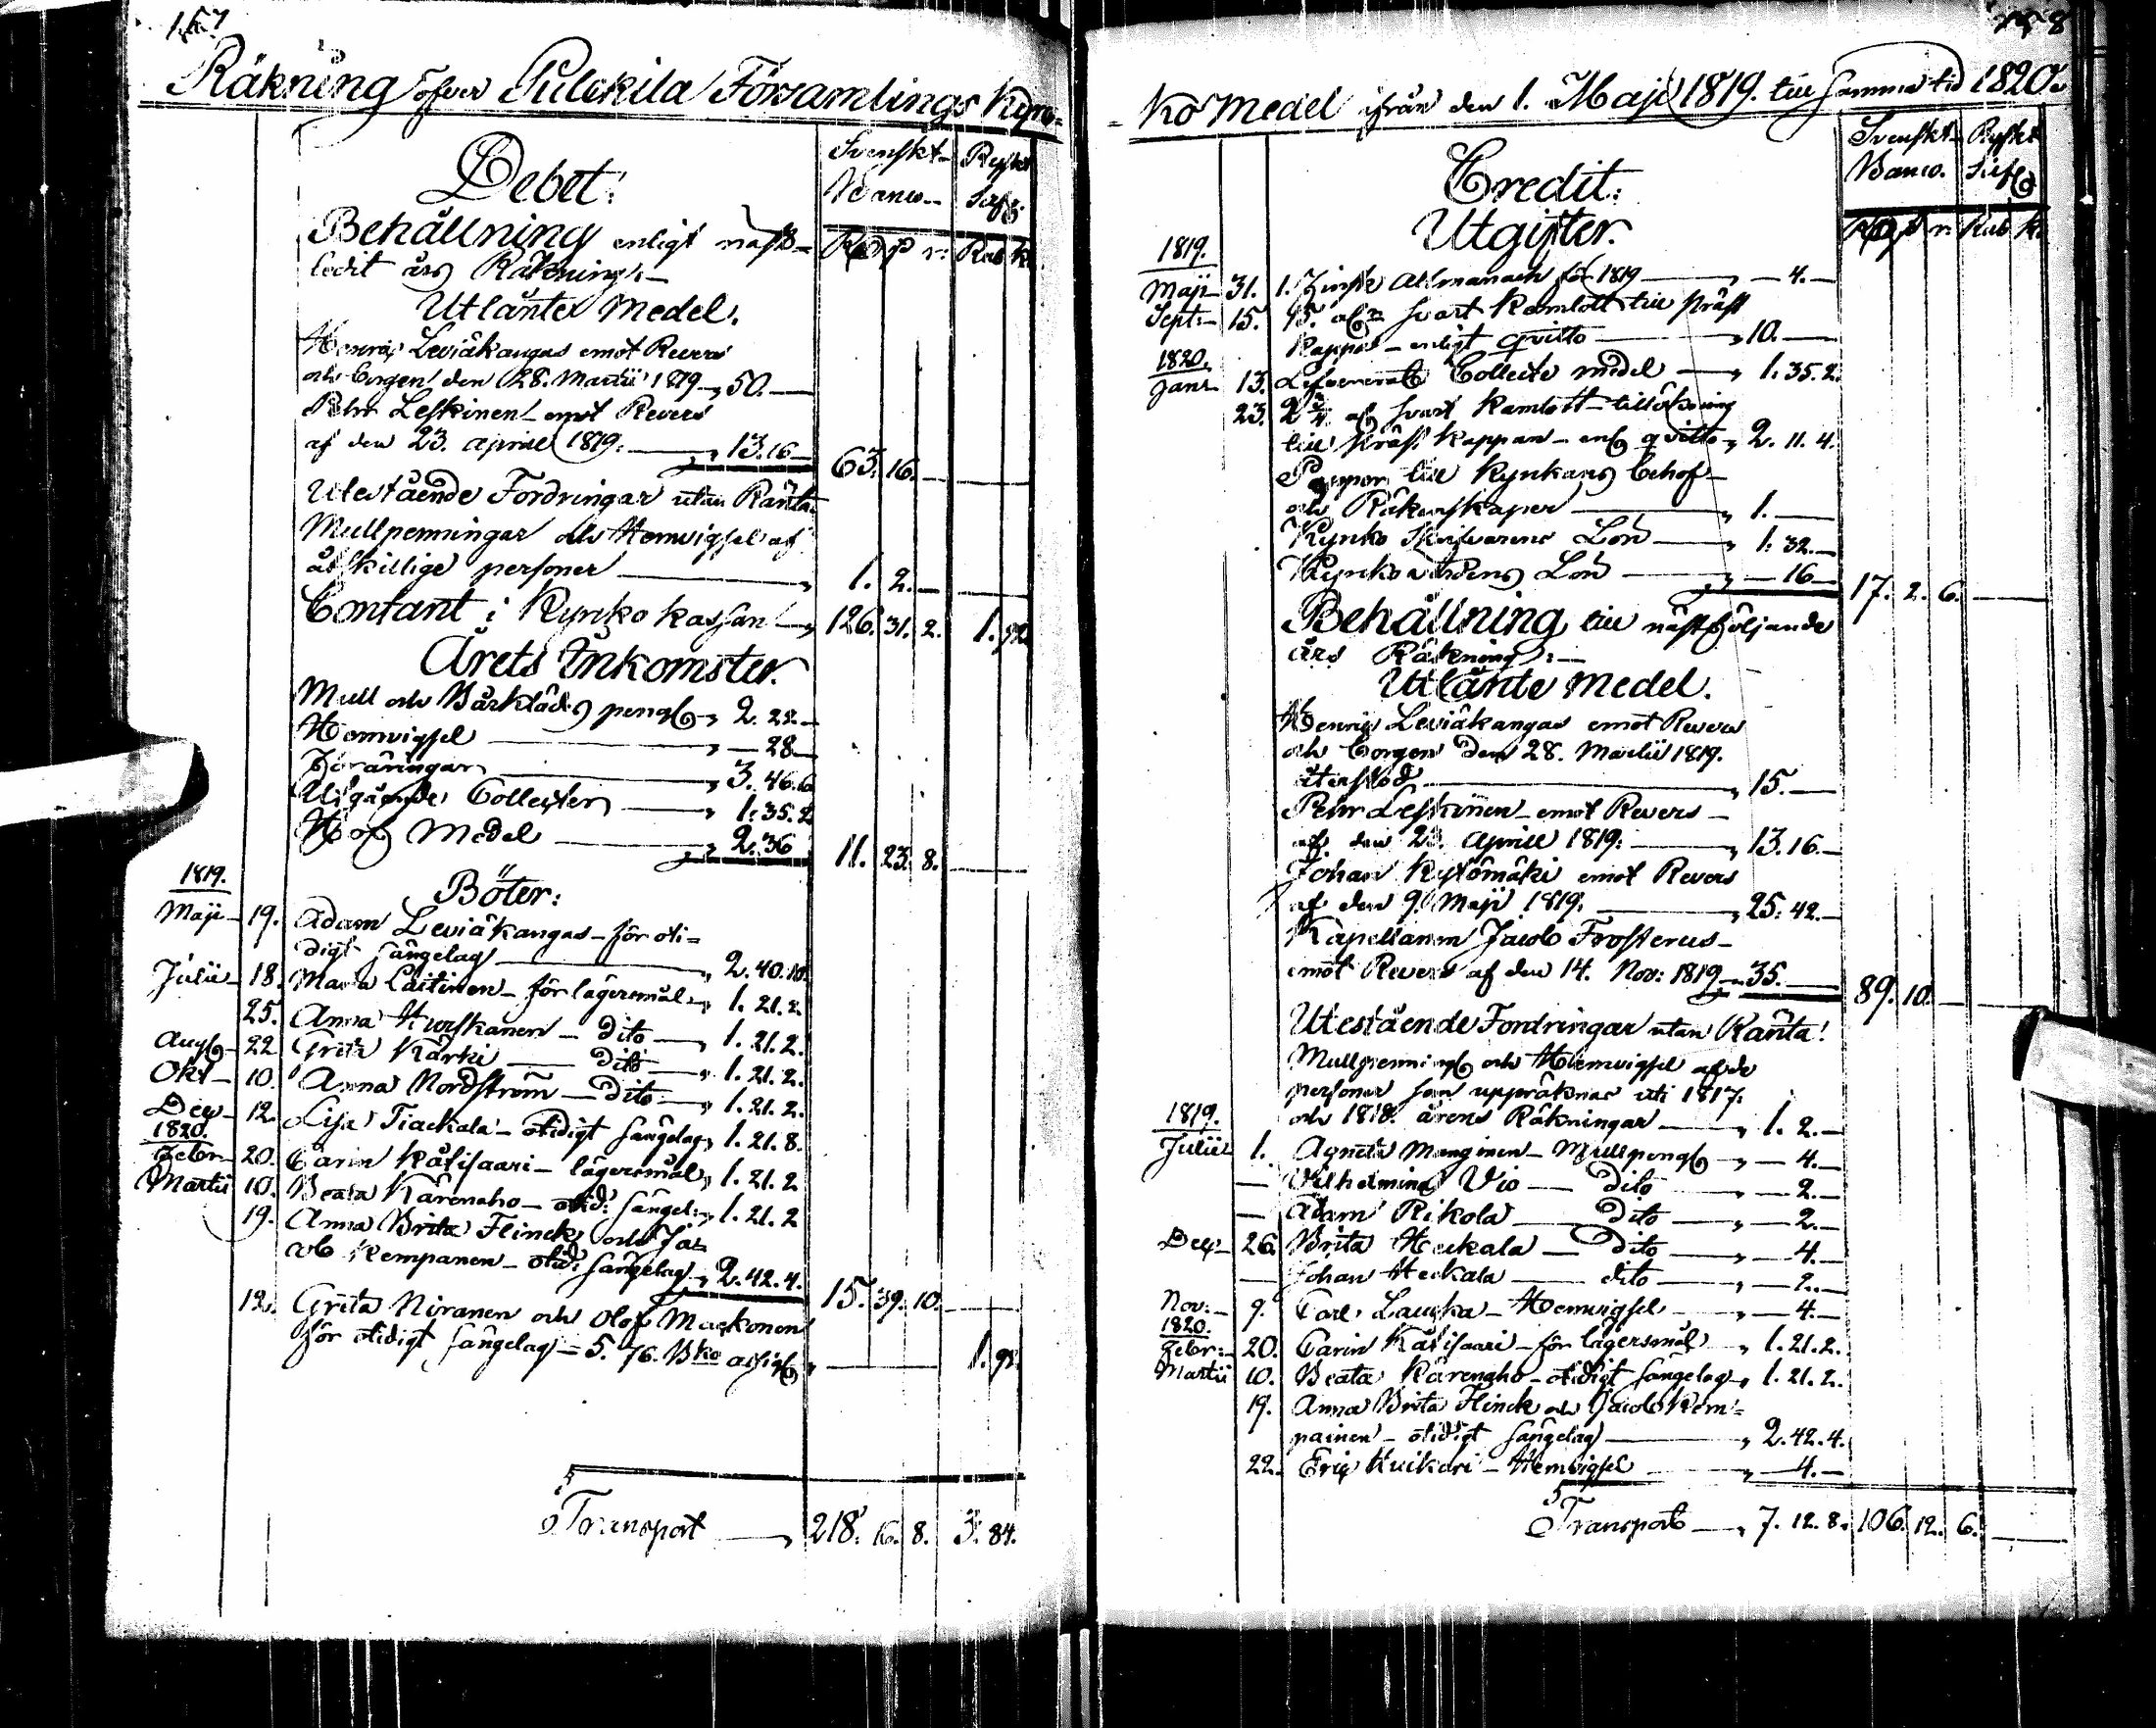 157
Räkning öfver Pulckila Församlings Kyrc-
Svenskt Ryskt
Debet: Banco. Sedl:
Behållning enligt näst- Rd s r: Rub k:
ledit års Räkning:-
Utlånte Medel.
Henric Leviäkangas emot Revers
och Borgen den 28. Martii 1819 — 50. —
Pehr Leskinen emot Revers
af den 23. Aprill 1819: — 13. 16 — 63. 16. —
Utestående Fordringar utan Ränta
Mullpenningar och Hemvigsel af
åtskillige personer — 1. 2. —
Contant i Kyrko kassan — 126. 31. 2. 1. 92
Årets Inkomster.
Mull och Bårkläds peng — 2. 22. —
Hemvigsel — 28 —
Föräringar — 3. 46. 6
Utgående Collecter — 1. 35. 2
Hof Medel — 2. 36 11. 23. 8. —
1819. Böter:
Maji - 19. Adam Leviäkangas - för oti=
digt sängelag — 2. 40. 10.
Julii - 18. Maria Laitinen - för lägersmål 1. 21. 2.
25. Anna Hurskanen - Dito — 1. 21. 2.
Aug - 22 Greta Kärki — Dito — 1. 21. 2.
Okt - 10. Anna Nordström - Dito — 1. 21. 2.
Dec - 12. Lisa Tiackala - otidigt sängelag 1. 21. 8.
1820.
Febr - 20. Carin Kätisaari - lägersmål 1. 21. 2
Martii 10. Beata Kärenaho - otid: sängel: 1. 21. 2
19. Anna Brita Flinck och Ja=
cob Kempanen - otid: sängelag 2. 42. 4. 15. 39. 10. —
12. Greta Niranen och Olof Mackonen
för otidigt sängelag - 5. 76. Bko assig — 1. 92.
Transport — 218. 16. 8. 3. 84.
158
- ko Medel ifrån den 1. Maji 1819. till samma tid 1820.
Svenskt Ryskt
Credit: Banco. Sedl
Utgifter. Rd s r: Rub k:
1819.
Maji - 31. 1. Finsk Allmanach för 1819 — 4. —
Sept: - 15. 15. al: svart Kamlott till Präst
kappa - enligt qvitto — 10. —
1820.
Janr 13. Lefvererade Collecte medel — 1. 35. 2.
23. 2 3/4 al: svart Kamlott - tillökning
till Präst kappan - enl qvitto 2. 11. 4.
Papper till Kyrkans behof
och Räkenskaper — 1. —
Kyrko Skrifvarens Lön — 1. 32. —
Kyrkovärdens Lön — 16 — 17. 2. 6. —
Behållning till nästföljande
års Räkning: —
Utlånte Medel.
Henric Leviäkangas emot Revers
och Borgen den 28. Martii 1819.
återstod — 15. —
Pehr Leskinen emot Revers -
af den 23. Aprill 1819: — 13. 16. —
Johan Kytömäki emot Revers
af den 9. Maji 1819: — 25. 42. —
Kapellanen Jacob Frosterus -
emot Revers af den 14. Nov: 1819 — 35. — 89. 10. —
Utestående Fordringar utan Ränta!
Mullpenning och Hemvigsel af de
personer som uppräknas uti 1817.
1819. och 1818. årens Räkningar — 1. 2. —
Julii 1. Agneta Manginen - Mullpeng — 4. —
— Vilhelmina Vio — Dito — 2. —
— Adam Rikola — Dito — 2. —
Dec - 26. Brita Heckala — Dito — 4. —
— Johan Heckala — dito — 2. —
Nov: - 9. Carl Laucka - Hemvigsel — 4. —
1820.
Febr: - 20. Carin Kätisaari - för lägersmål 1. 21. 2.
Martii 10. Beata Kärenaho - otidigt sängelag 1. 21. 2.
19. Anna Brita Flinck och Jacob Kem=
painen - otidigt sängelag — 2. 42. 4.
22. Eric Kuikari - Hemvigsel — 4. —
Transport — 7. 12. 8. 106. 12. 6. —